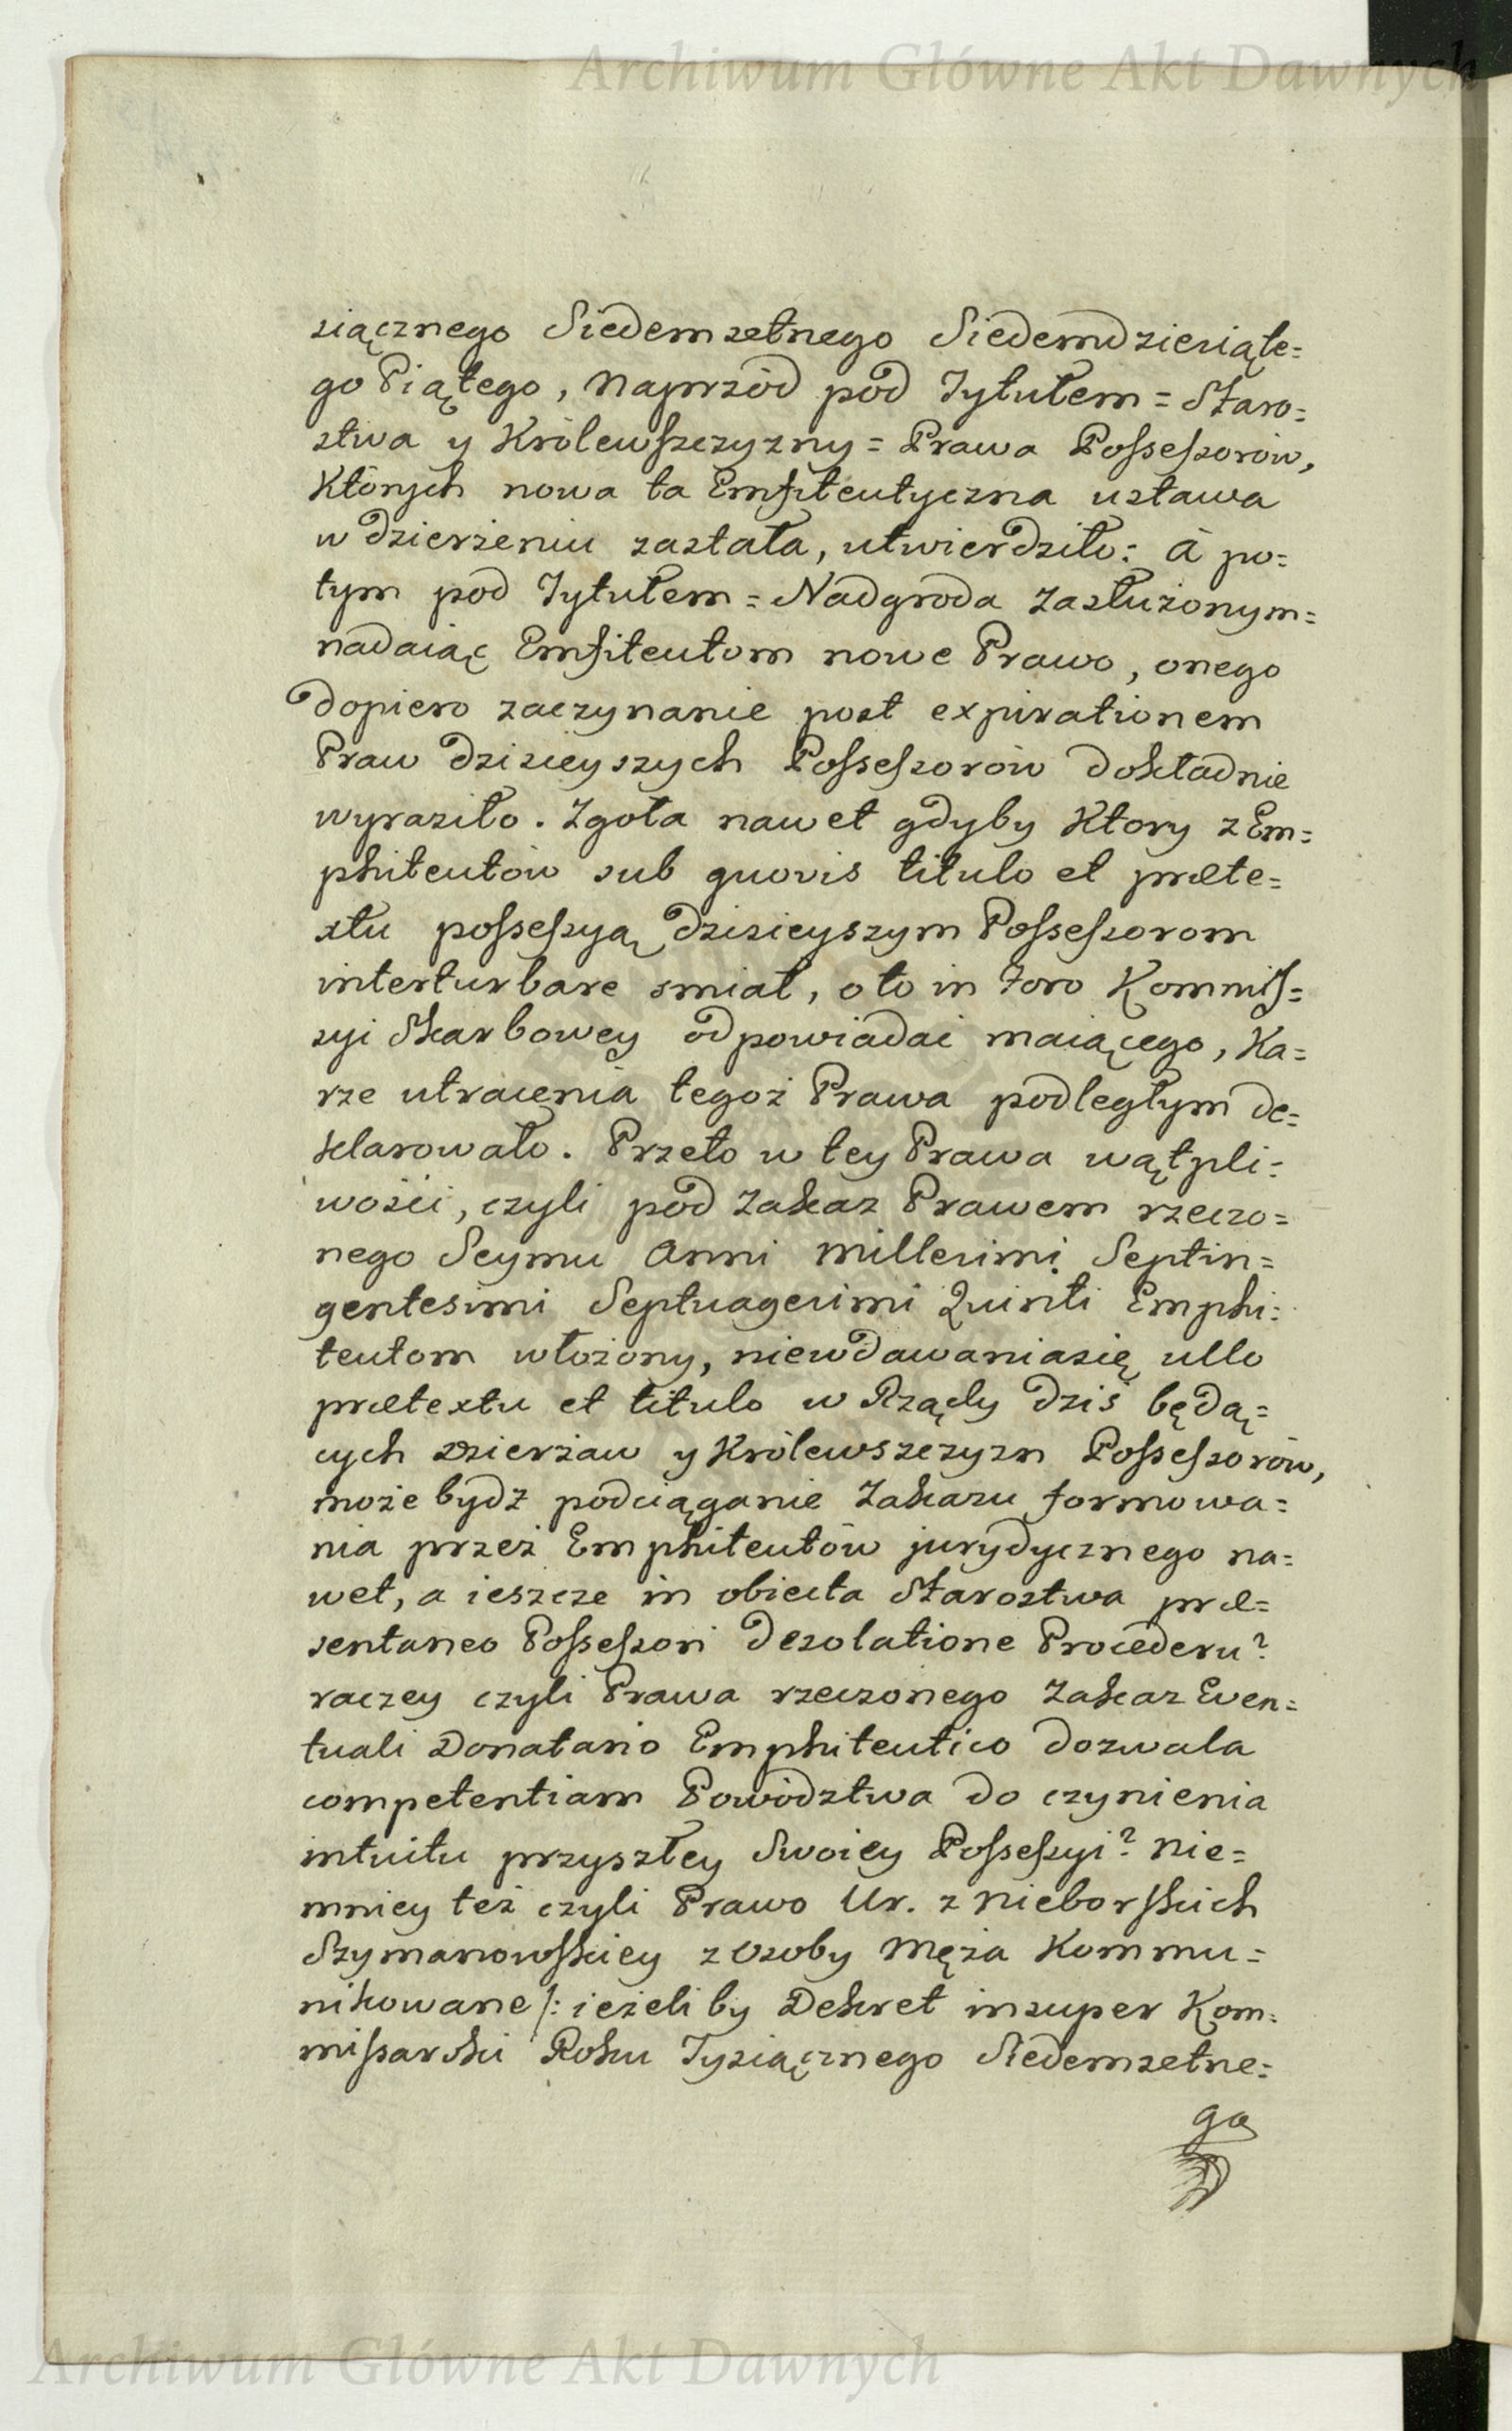 Archiwum Główne Akt Dawnych
siącznego Siedemsetnego Siedemdziesiąte=
go Piątego, naprzód pod Tytułem = Staro=
stwa y Królewszczyzny = Prawa Possessorów,
Których nowa ta Emfiteutyczna ustawa
w dzierżeniu zastała, utwierdziło: à po=
tym pod Tytułem = Nadgroda zasłużonym=
nadaiąc Emfiteutom nowe Prawo, onego
dopiero zaczynanie post expirationem
Praw dzisieyszych Possessorów dokładnie
wyraziło. Zgoła nawet gdyby Ktory z Em=
phiteutów sub quovis titulo et præte=
xtu possessyą dzisieyszym Possessorom
interturbare smiał, o to in foro Kommis=
syi Skarbowey odpowiadać maiącego, Ka=
rze utracenia tegoż Prawa podległym de=
klarowało. Przeto w tey Prawa wątpli=
wości, czyli pod zakaz Prawem rzeczo=
nego Seymu Anni millesimi Septin=
gentesimi Septuagesimi Quinti Emphi=
teutom włożony, niewdawaniasię ullo
prætextu et titulo w Rządy dziś będą=
cych dzierżaw y Królewszczyzn Possessorów,
może bydź podciąganie zakazu formowa=
nia przez Emphiteutów jurydycznego na=
wet, a ieszcze in obiecta Starostwa præ=
sentaneo Possessori desolatione Procederu?
raczey czyli Prawa rzeczonego zakaz Even=
tuali Donatario Emphiteutico dozwala
competentiam Powództwa do czynienia
intuitu przyszłey Swoiey Possessyi? nie=
mniey też czyli Prawo Ur. z Nieborskich
Szymanowskiey z Osoby Męża Kommu=
nikowane /: ieżeliby Dekret insuper Kom=
missarski Roku Tysiącznego Siedemsetne=
go
Archiwum Główne Akt Dawnych